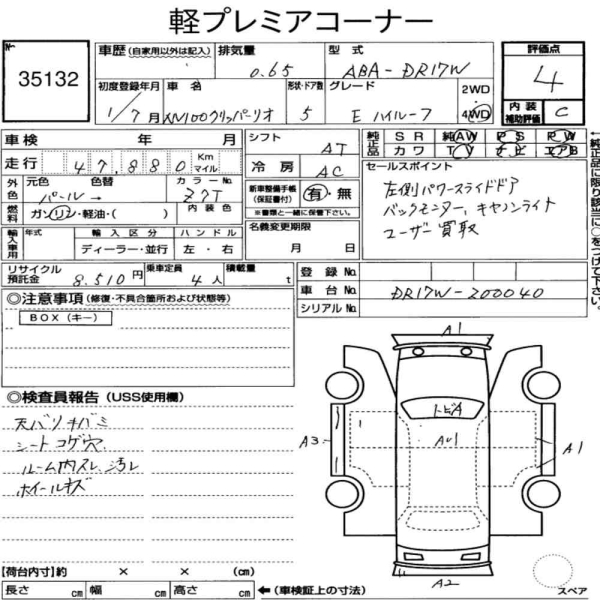 軽プレミアコーナー
No.
35132
車歴 (自家用以外は記入)
排気量
0.65
型式
ABA-DR17W
評価点
4
内装
補助評価
C
初度登録年月
1/7月
車名
NV100クリッパーリオ
形状・ドア数
5
グレード
E ハイルーフ
2WD
4WD
車検 年 月
走行
47,880
Km
マイル
シフト
AT
冷房
AC
純正品
SR 純AW PS PW
カワ TV ナビ エアB
外色
元色 色替
パール→
カラーNo.
Z7T
内装色
燃料
ガソリン・軽油・( )
新車整備手帳
(保証書付)
※書類と一緒に保管して下さい。
有・無
セールスポイント
左側パワースライドドア
バックモニター、キセノンライト
ユーザー買取
輸入車用
年式
輸入区分
ハンドル
ディーラー・並行
左・右
名義変更期限
月 日
リサイクル
預託金
8,510円
乗車定員
4人
積載量
t
登録No.
車台No.
DR17W-200040
シリアルNo.
←純正品に限り該当に○をつけて下さい。
◎注意事項 (修復・不具合箇所および状態等)
BOX (キー)
◎検査員報告 (USS使用欄)
天バリキバミ
シートコゲ穴
ルーム内スレ、汚レ
ホイールキズ
A1
トビA
AU1
A3
A1
A2
スペア
【荷台内寸】約 × × (cm)
長さ cm 幅 cm 高さ cm
← (車検証上の寸法)